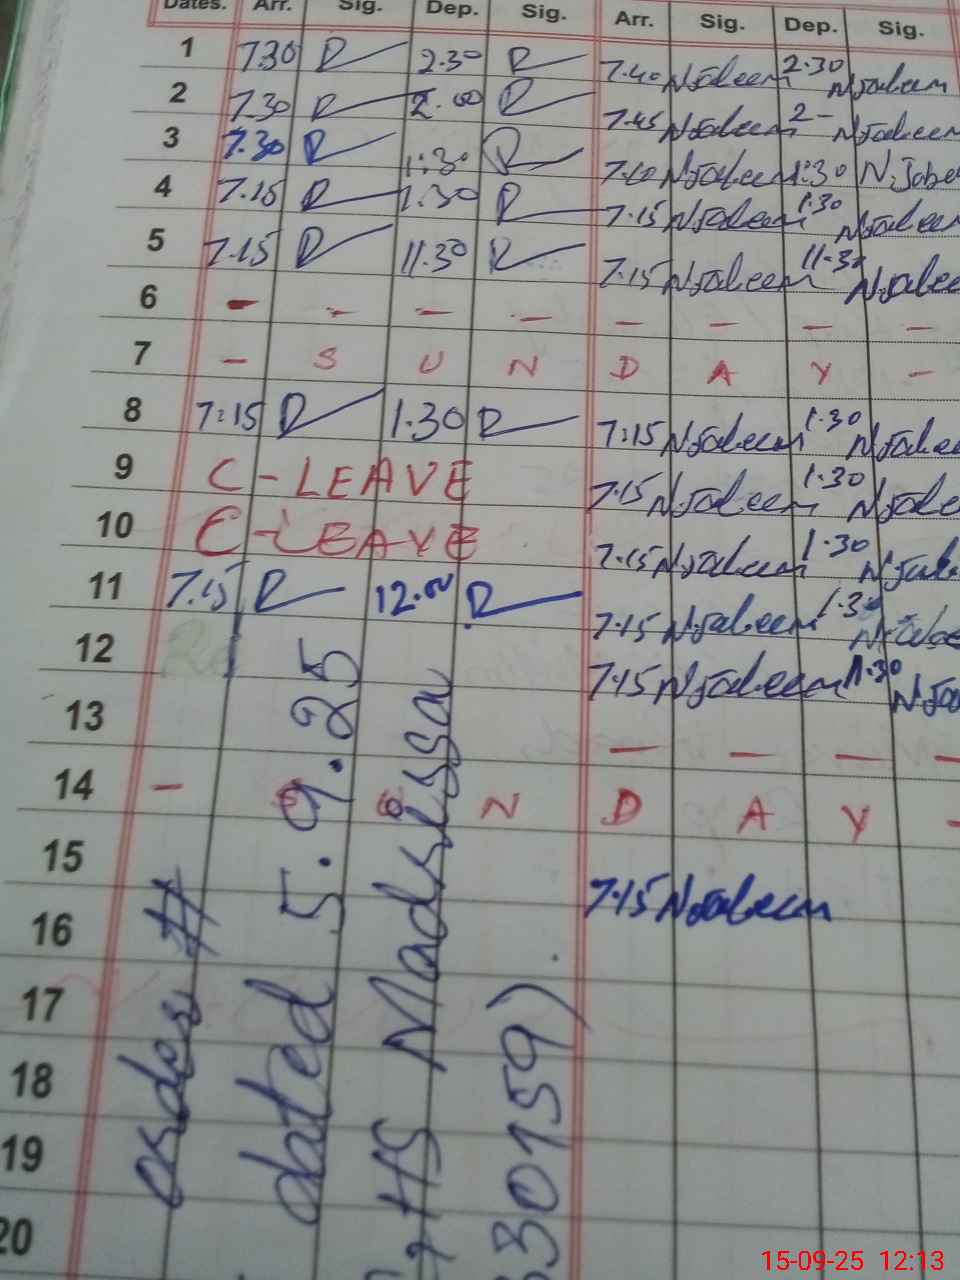 Dates. Arr. Sig. Dep. Sig. Arr. Sig. Dep. Sig.
1 7.30 R 2.30 R 7.40 N Jabeen 2.30 N Jabeen
2 7.30 R 2.00 R 7.45 N Jabeen 2 - N Jabeen
3 7.30 R 1:30 R N Jabeen 1:30 N Jabe
4 7.15 R 1.30 R 7.15 N Jabeen 1.30 N Jabeen
5 7.15 R 11.30 R 7.15 N Jabeen 11.30 N Jabee
6 - - - - - - - -
7 - S U N D A Y -
8 7:15 R 1.30 R 7:15 N Jabeen 1.30 N Jabee
9 C-LEAVE 7.15 N Jabeen 1.30 N Jabe
10 C-LEAVE 7.15 N Jabeen 1.30 N Jab
11 7.15 R 12.00 R 7.15 N Jabeen 1.3 N Jabe
12 7.15 N Jabeen 1.30 N Jab
13 - - - -
14 - N D A Y -
15 7.15 N Jabeen
16
17
18
19
20
order #
dated 5.9.25
HS Madrissa
30159)
15-09-25 12:13